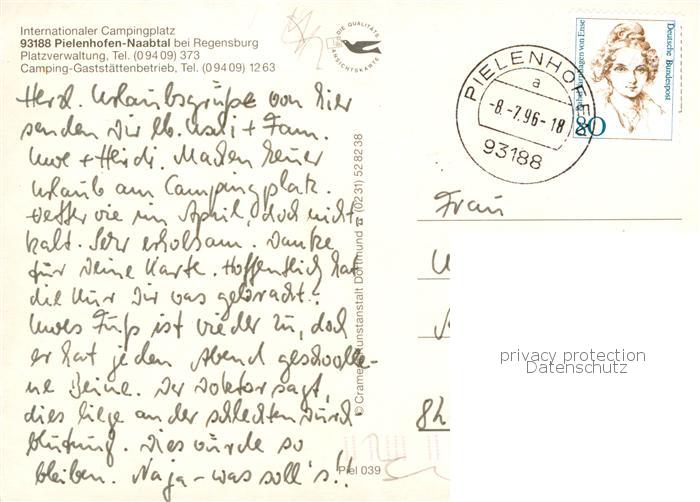 Internationaler Campingplatz
93188 Pielenhofen-Naabtal bei Regensburg
Platzverwaltung, Tel. (0 94 09) 373
Camping-Gaststättenbetrieb, Tel. (0 94 09) 12 63
Herzl. Urlaubsgrüße von hier
senden Dir lb. Usli + Fam.
Uwe + Heidi. Machen heuer
Urlaub am Campingplatz.
Wetter wie im April, doch nicht
kalt. Sehr erholsam. Danke
für Deine Karte. Hoffentlich hat
die Kur Dir was gebracht.
Uwes Fuß ist wieder zu, doch
er hat jeden Abend geschwolle-
ne Beine. Der Doktor sagt,
dies liege an der schlechten Durch-
blutung. Dies würde so
bleiben. Naja - was soll's!!
DIE QUALITÄTS
ANSICHTSKARTE
© Cramers Kunstanstalt Dortmund ☎ (0231) 52 82 38
Piel 039
PIELENHOFEN
a
-8.-7.96-18
93188
Deutsche Bundespost
80
Frau
84
privacy protection
Datenschutz